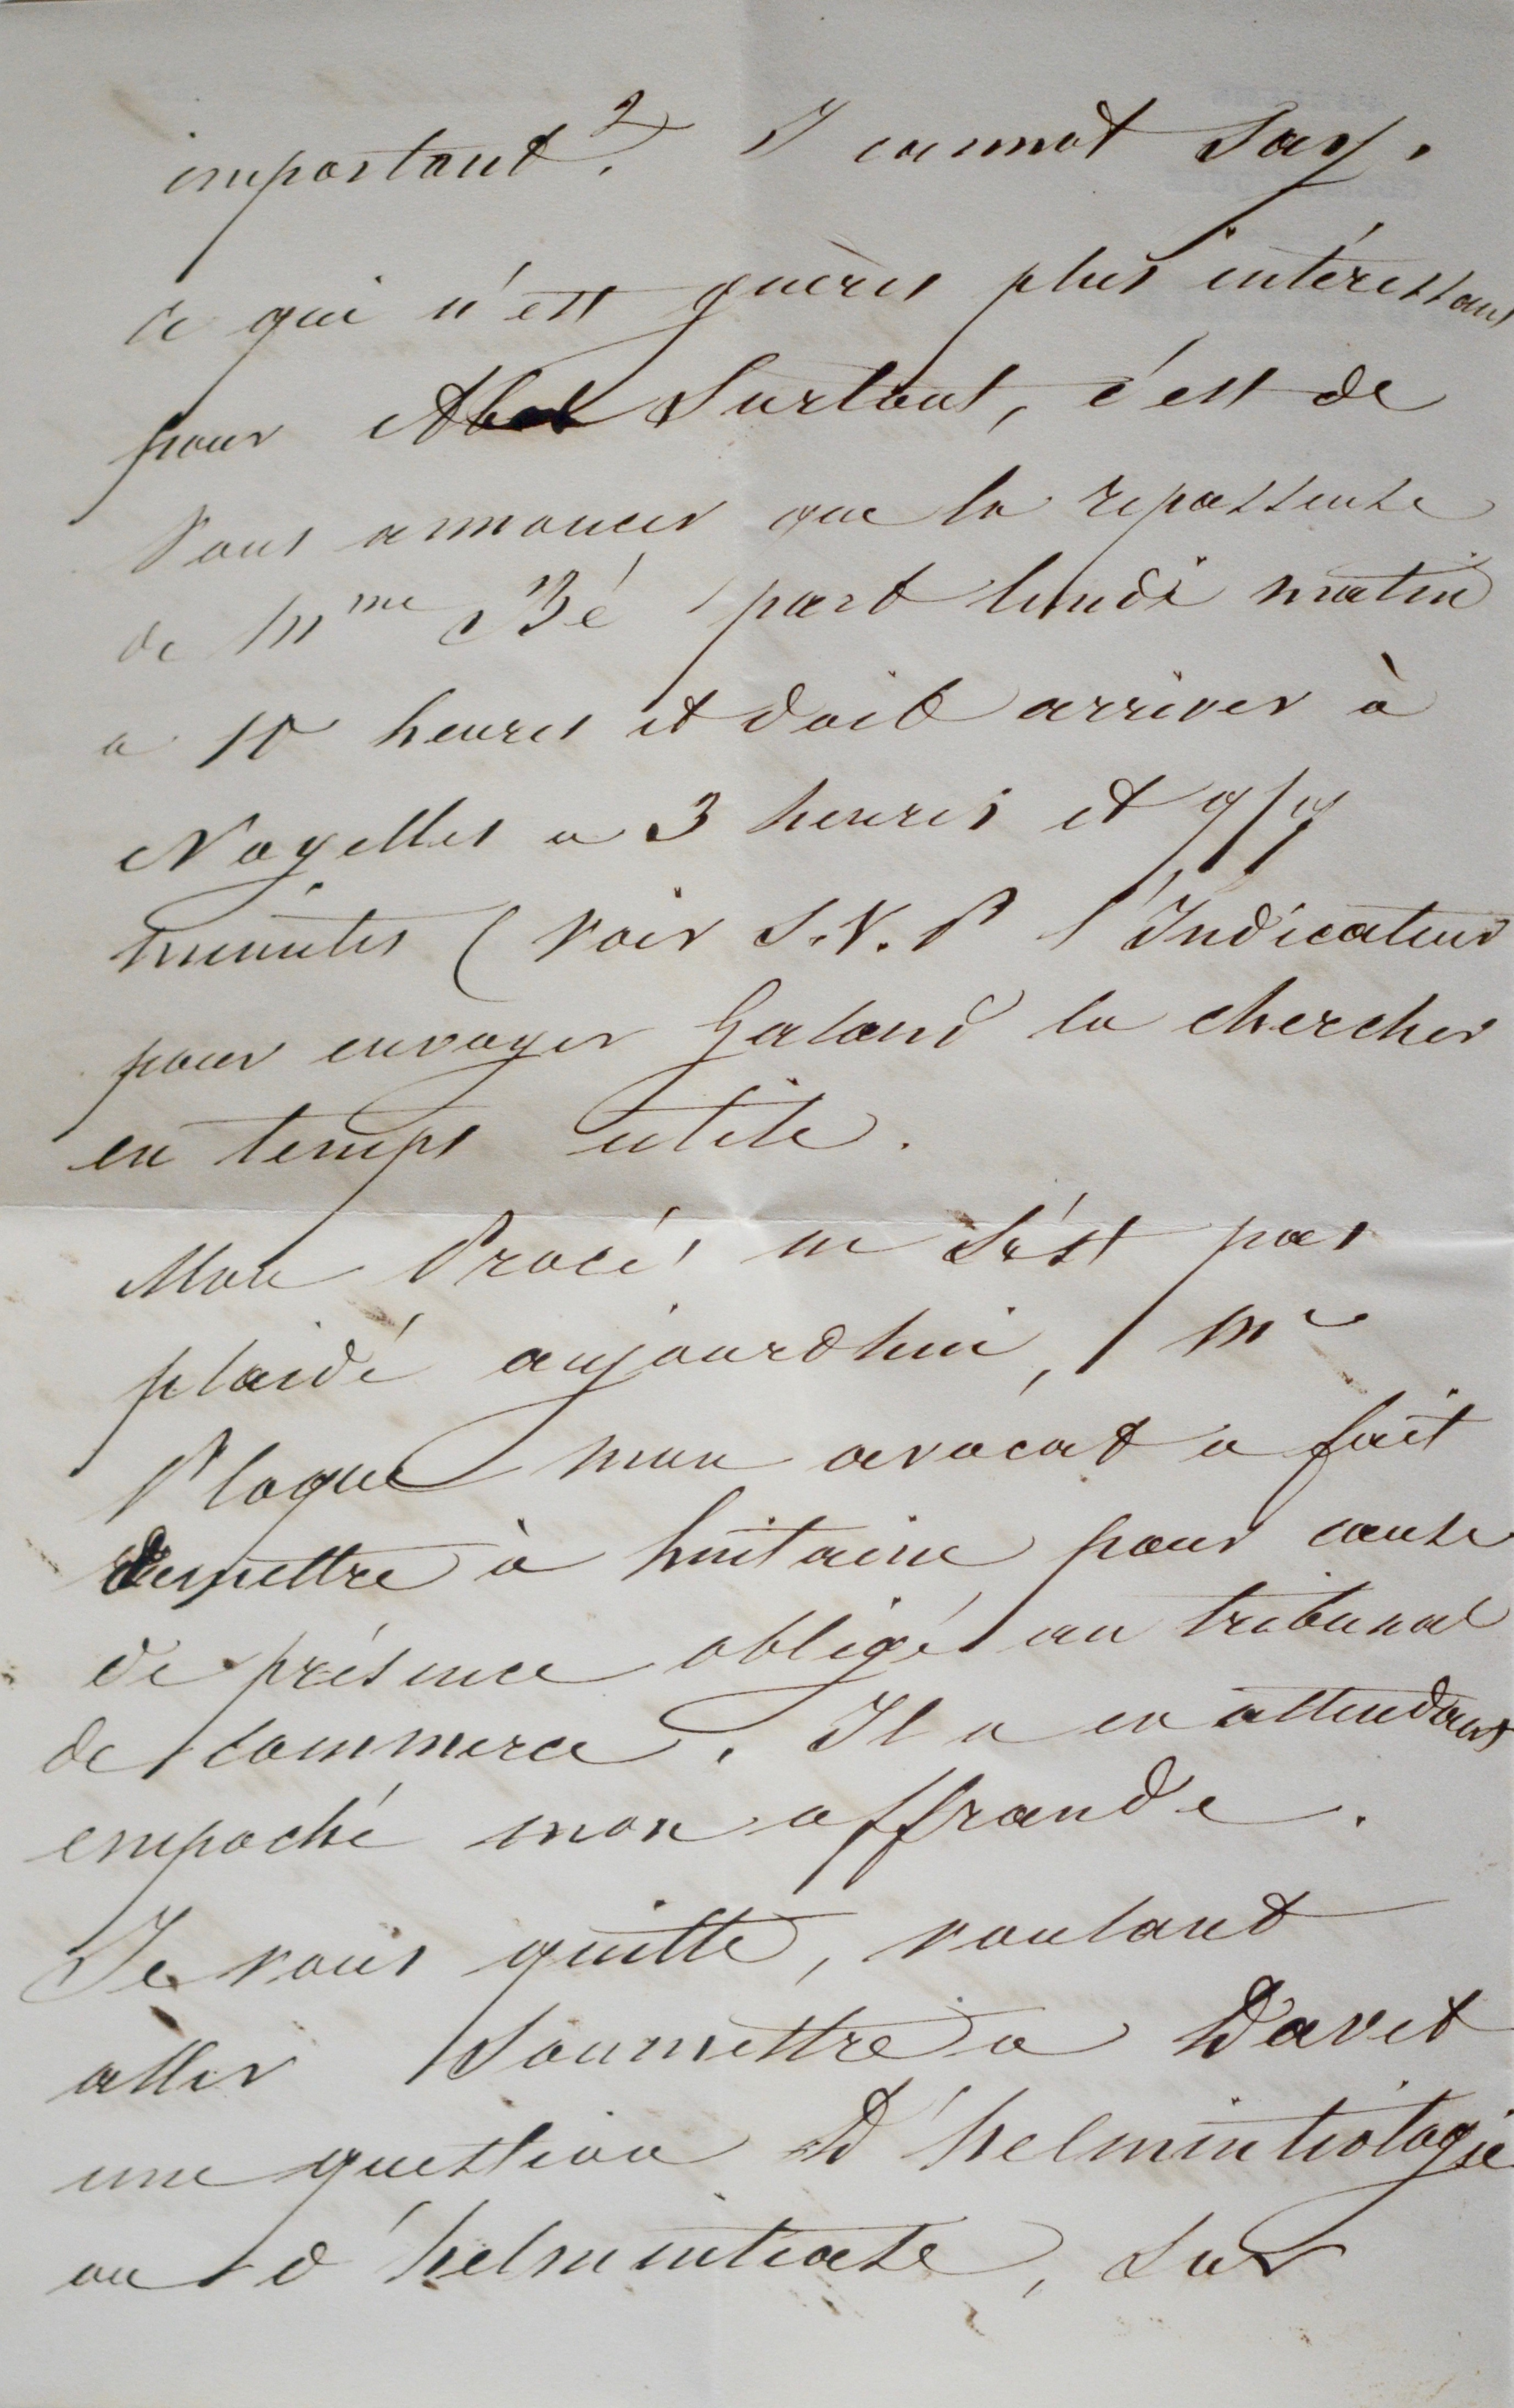 important ? I cannot say.
ce qui n'est guères plus intéressant
pour Abel surtout, c'est de
vous annoncer que la repasseuse
de Mme Bé part lundi matin
a 10 heures et doit arriver à
Noyelles a 3 heures et qq
minutes (voir S.V.P l'Indicateur
pour envoyer Galand la chercher
en temps utile.
Mon Procés ne s'est pas
plaidé aujourdhui, Me
Ploque mon avocat a fait
remettre à huitaine pour cause
de présence obligé au tribunal
de commerce. Il a en attendant
empoché mon offrande.
Je vous quitte, voulant
aller soumettre a Davet
une question d'helmintiologie
ou d'helmintiase, sur